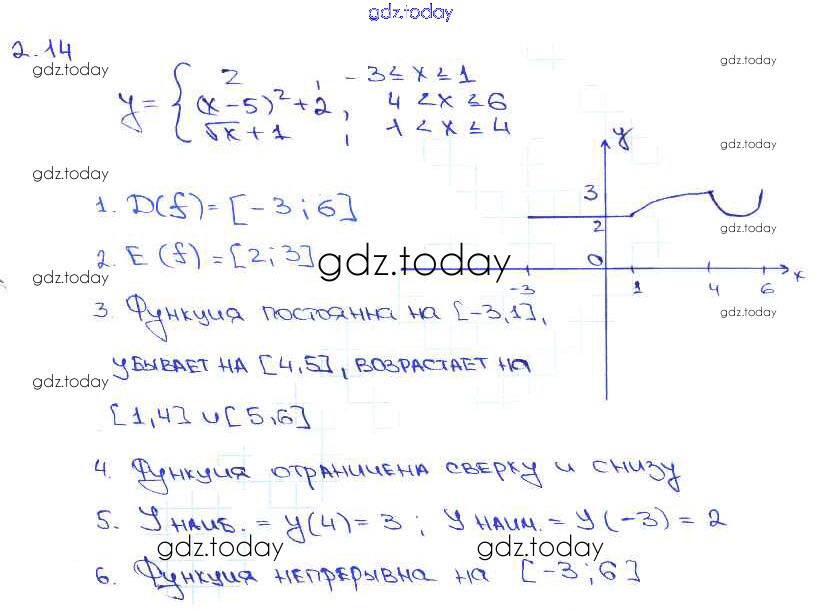 gdz.today
2.14
gdz.today
gdz.today
y = { 2, -3 ≤ x ≤ 1
(x-5)² + 2, 4 < x ≤ 6
√x + 1, 1 < x ≤ 4
y
gdz.today
gdz.today
3
1. D(f) = [-3; 6]
2
gdz.today
2. E(f) = [2; 3]
0
gdz.today
x
gdz.today
-3
1
4
6
3. Функция постоянна на [-3, 1],
gdz.today
убывает на [4, 5], возрастает на
gdz.today
[1, 4] ∪ [5, 6]
4. Функция ограничена сверху и снизу
5. Y наиб. = y(4) = 3; Y наим. = y(-3) = 2
gdz.today
gdz.today
6. Функция непрерывна на [-3; 6]